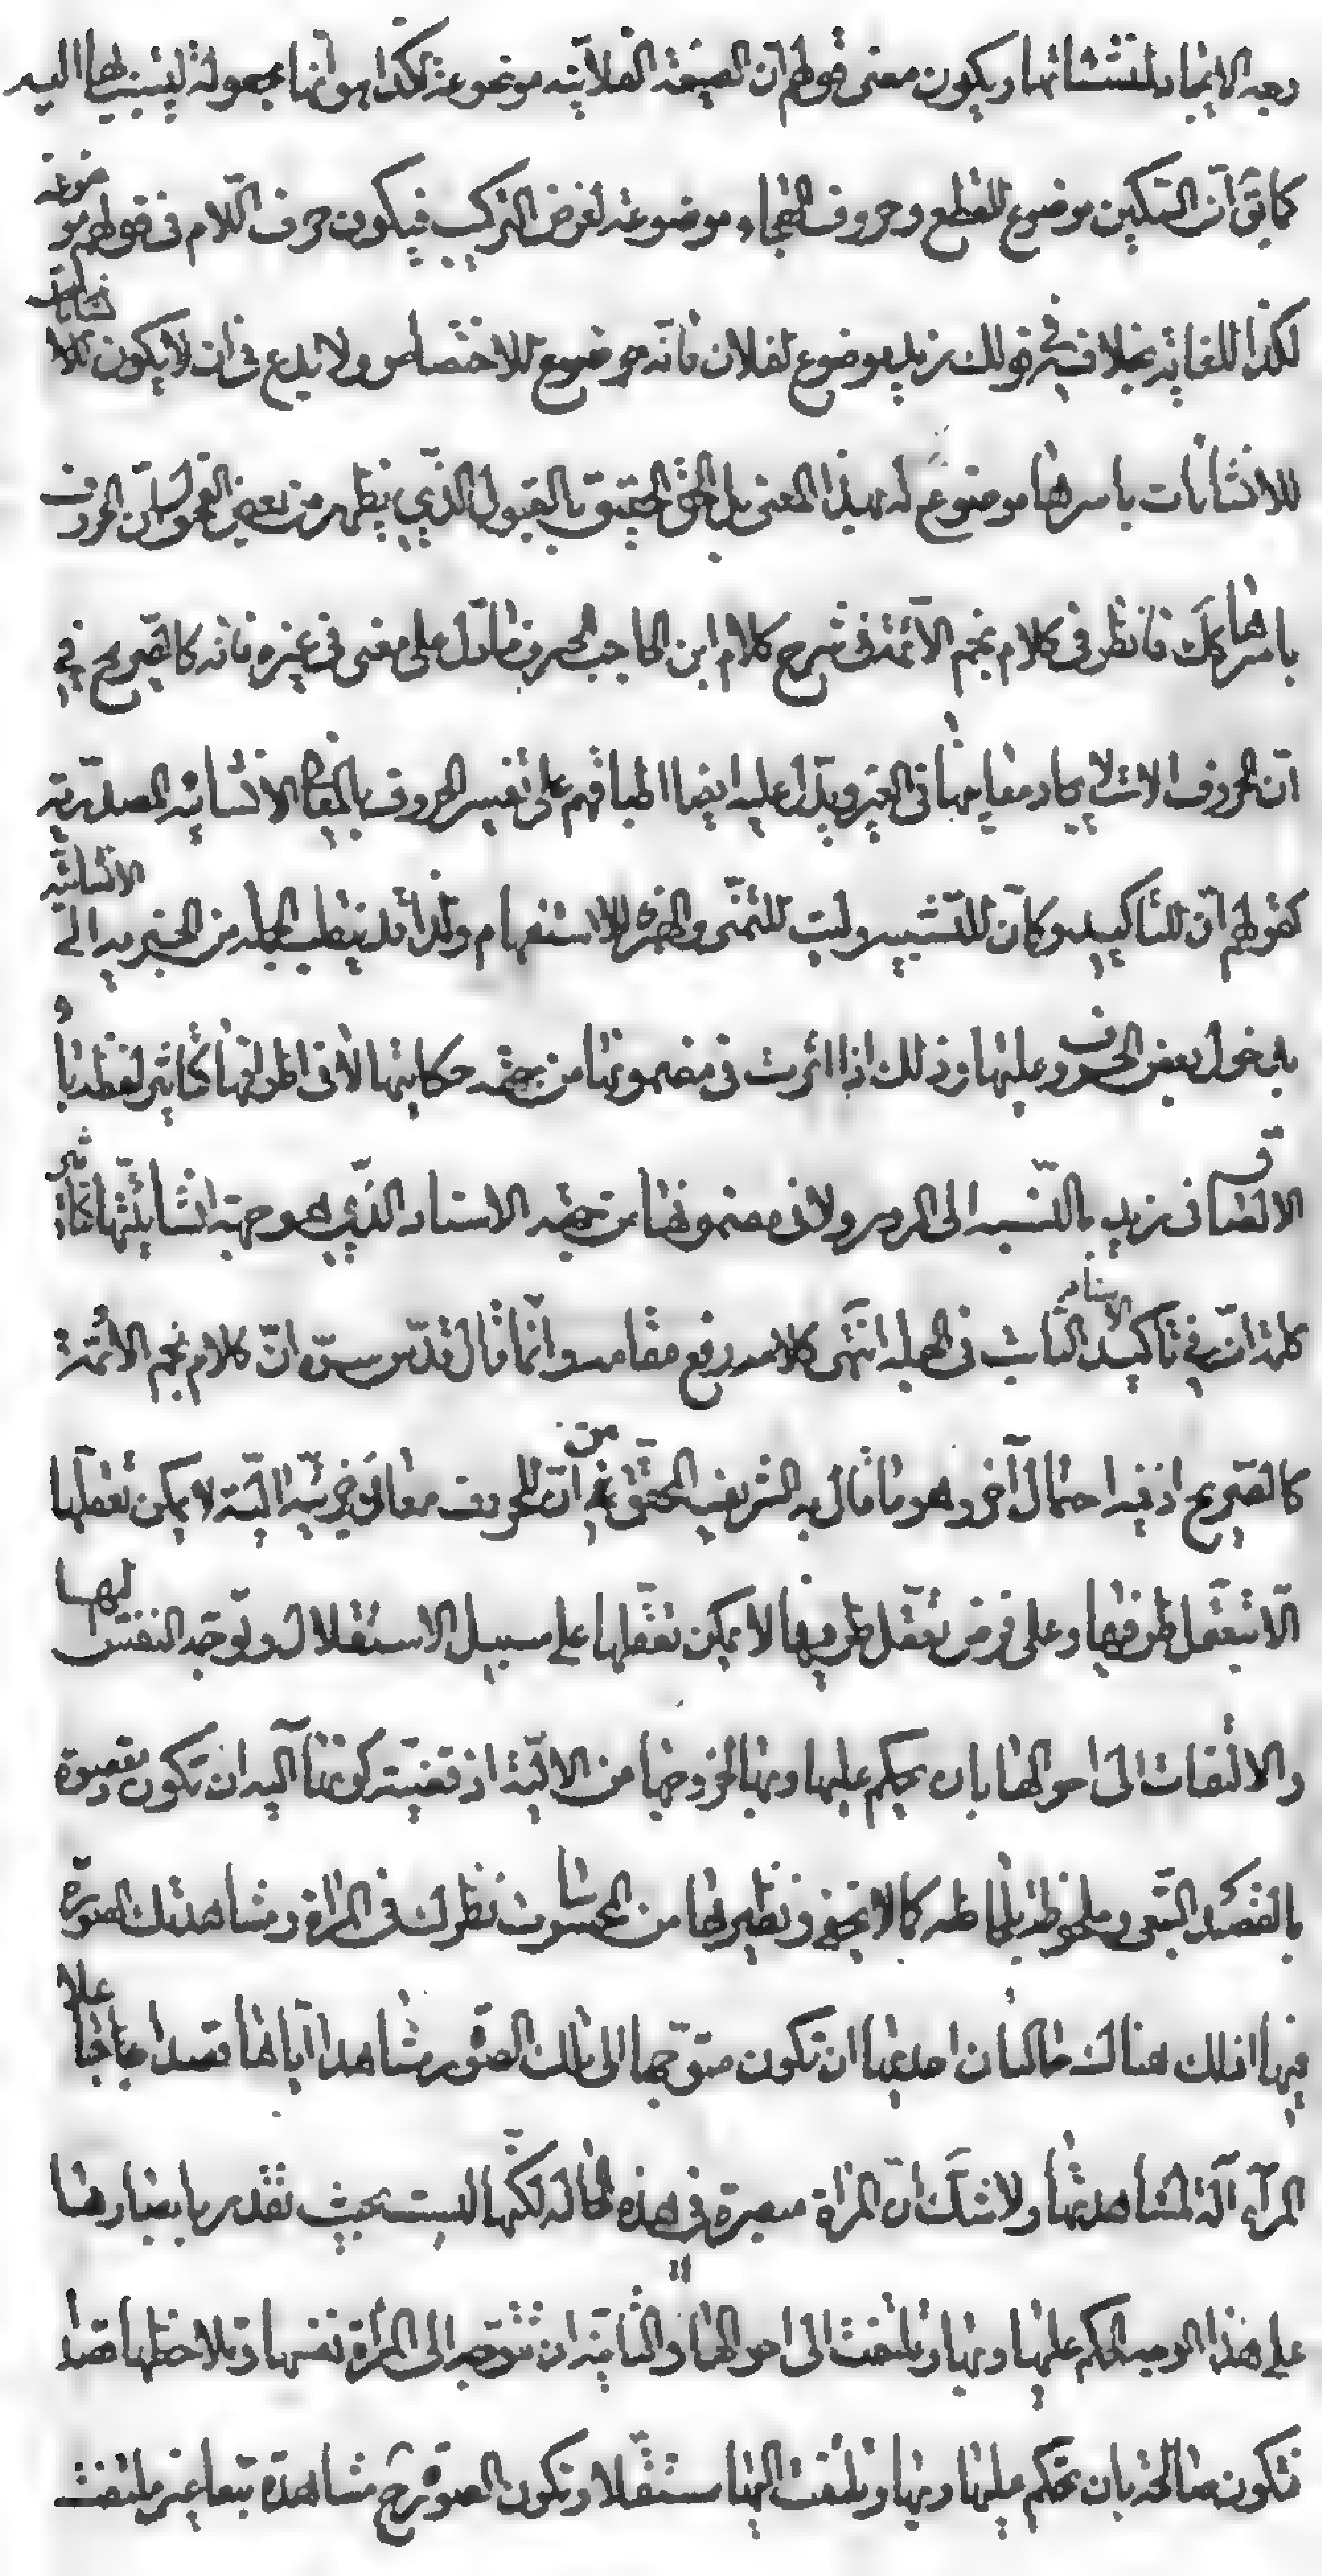 وجه الايجاد لمنشئاتها ويكون معنى قولهم ان الصيغة الفلانية موضوعة لكذا هو انها مجعولة لينسب بها اليه
كما يق ان السكين موضوع للقطع وحروف الهجاء موضوعة لغرض التركيب فيكون حرف اللام فى قولهم موضوعة
لكذا للغاية بخلافه فى قولك زيد موضوع لفلان فانه موضوع للاختصاص ولا بدع فى ان لا يكون للانشائات
للانشائات باسرها موضوع له بهذا المعنى بل الحق الحقيق بالقبول الذي يظهر من بعض الفحول ان الحروف
باسرها كك فانظر فى كلام نجم الائمة فى شرح كلام ابن الحاجب الحرف ما دل على معنى فى غيره فانه كالتصريح في
ان الحروف الات لايجاد معانيها فى الغير ويدل عليه ايضا اطباقهم على تفسير الحروف بالمعانى الانشائية المصدرية
كقولهم ان للتاكيد وكأن للتشبيه وليت للتمنى والهمزة للاستفهام ولذا قد ينقلب الجملة من الخبرية الى الانشائية
بدخول بعض الحروف عليها وذلك اذا اثرت فى مضمونها من جهة حكايتها لا فى اطرافها كتاثير لفظة با و
الالصاق فى زيد بالنسبة الى المرور ولا فى مضمونها من جهة الاسناد الذي هو جهة انشائيتها كتاثير
كلمة ان في تاكيد الاسناد الثابت فى الجملة انتهى كلامه رفع مقامه وانما قال قدس سره ان كلام نجم الائمة
كالتصريح اذ فيه احتمال آخر وهو ما قال به الشريف المحقق من ان للحروف معان جزئية الية لا يمكن تعقلها
الا بتعقل طرفيها وعلى فرض تعقل طرفيها لا يمكن تعقلها على سبيل الاستقلال وتوجه النفس اليها
والالتفات الى احوالها بان يحكم عليها وبها لخروجها من الالية اذ قضية كونها آلية ان تكون مقصودة
بالقصد التبعى وملحوظة بلحاظه كما لا يخفى ونظيرها من المحسوسات نظرك فى المراة ومشاهدتك الصورة
فيها اذ لك هناك حالتان احديها ان تكون متوجها الى تلك الصورة مشاهدا اياها قصدا جاعلا
المرآة آلة لمشاهدتها ولا شك ان المراة مبصرة فى هذه الحالة لكنها ليست بحيث تقدر بابصارها
على هذا الوجه الحكم عليها وبها وتلتفت الى احوالها والثانية ان تتوجه الى المرأة نفسها وتلاحظها قصدا
فتكون صالحة بان تحكم عليها وبها وتلتفت اليها مستقلا وتكون الصورة ح مشاهدة تبعا غير ملتفت